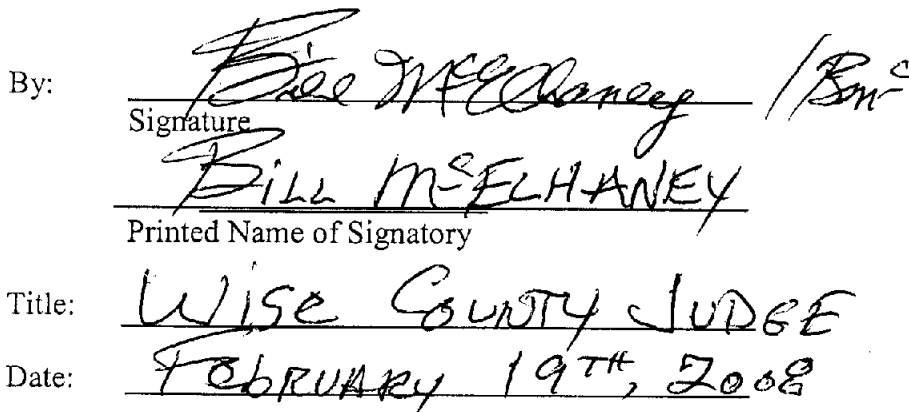 By: Bill McElhaney /Bmc
Signature
Bill McELHANEY
Printed Name of Signatory
Title: Wise County JUDGE
Date: FebRUARY 19TH, 2008